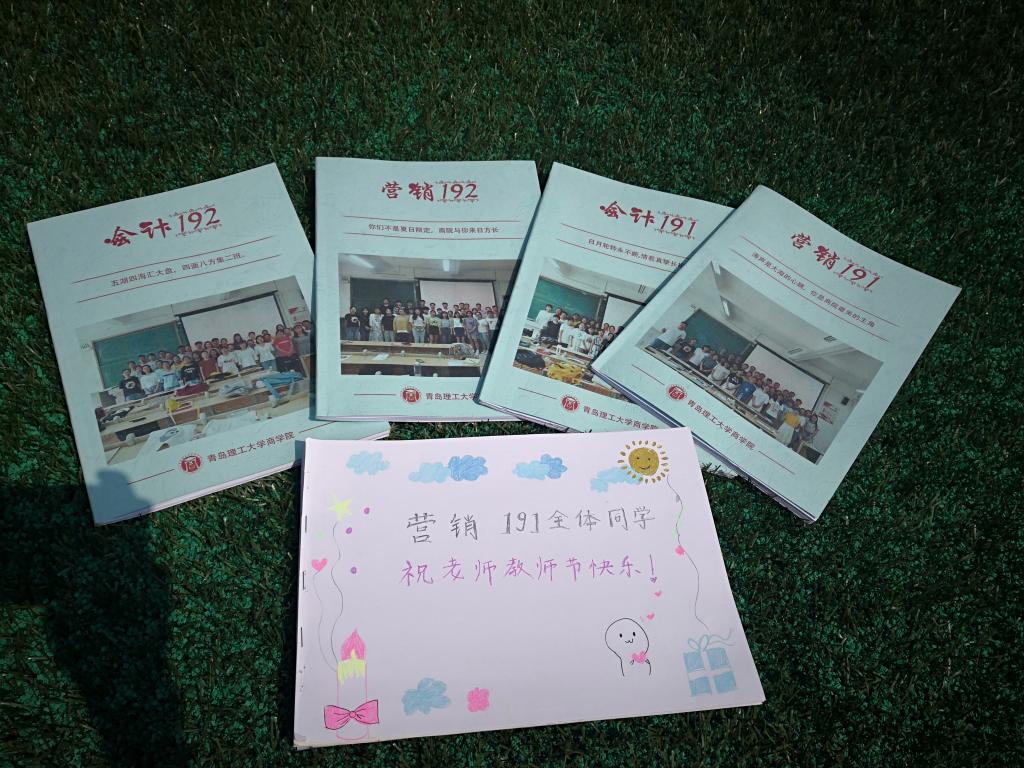 会计192
五湖四海汇大盘，四面八方集二班。
青岛理工大学商学院
营销192
你们不是夏日限定，商院与你来日方长
青岛理工大学
会计191
日月轮转永不断,情若真挚长
青岛理工大学商学院
营销191
涛声是大海的心跳，你是商院最美的主角
青岛理工大学商学院
营销 191全体同学
祝老师教师节快乐！